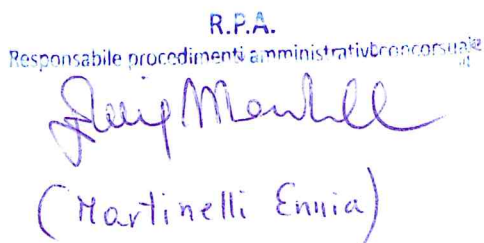 R.P.A.
Responsabile procedimenti amministrativi concorsuale
(Martinelli Ennia)